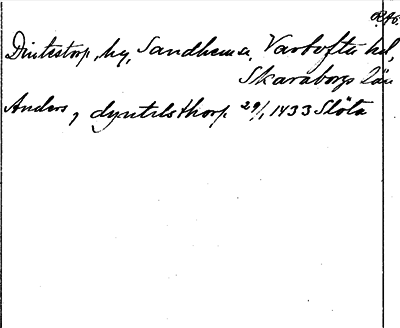 Dintestorp, by, Sandhems s, Vartofta hd,
Skaraborgs Län
Anders, j dyntelsthorp 29/1 1433 Slöta